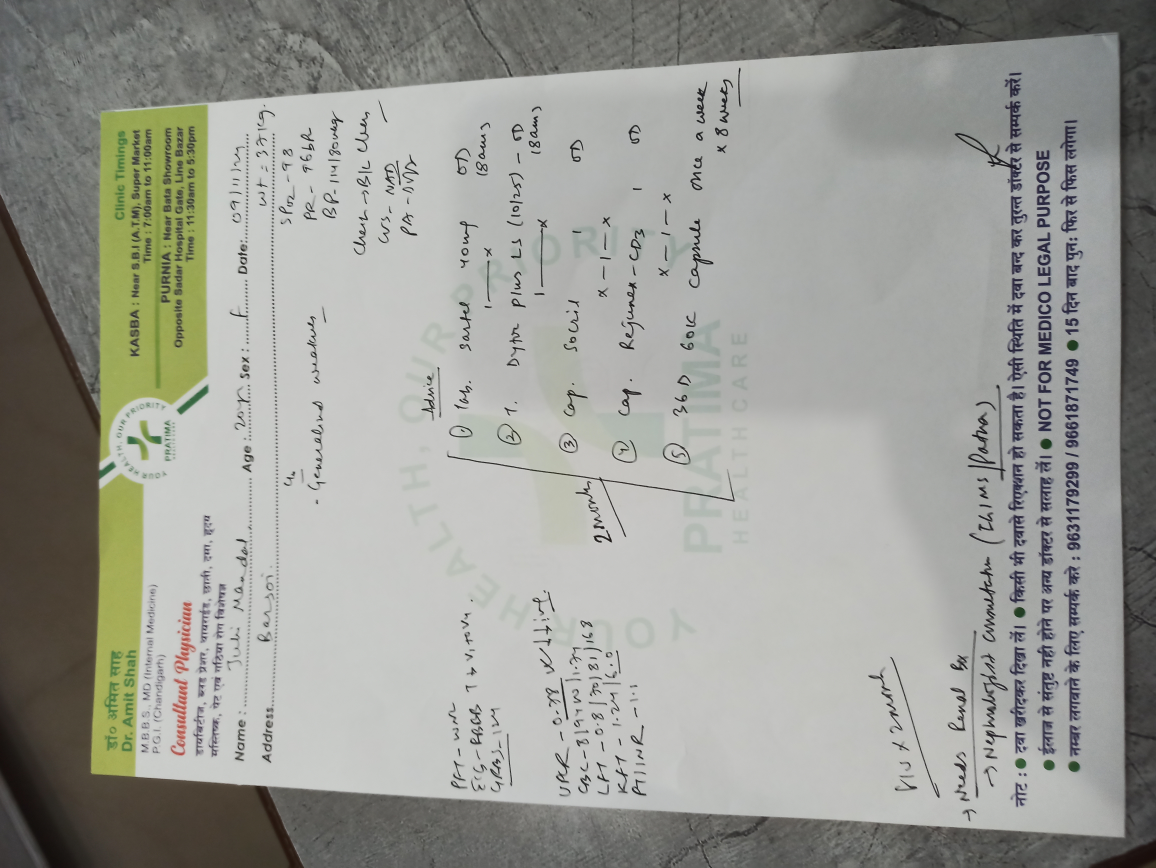 डॉ० अमित साह
Dr. Amit Shah
M.B.B.S., MD (Internal Medicine)
P.G.I. (Chandigarh)
Consultant Physician
डायबिटीज, ब्लड प्रेशर, थायराईड, छाती, दमा, हृदय
मस्तिष्क, पेट एवं गठिया रोग विशेषज्ञ
YOUR HEALTH, OUR PRIORITY
PRATIMA
HEALTH CARE
Clinic Timings
KASBA : Near S.B.I (A.T.M), Super Market
Time : 7:00am to 11:00am
PURNIA : Near Bata Showroom
Opposite Sadar Hospital Gate, Line Bazar
Time : 11:30am to 5:30pm
Name : Juli Mandal Age : 20 Sex : F Date: 09/11/24
Address Barsoi wt = 37 kg.
- Generalised weakness
SPO2 - 98
PR - 96
BP - 114/80 mmHg
Chest → B/L Clear
CVS - NAD
PA -
PFT - WNL
ECG - RBBB V1 to V4.
GRBS - 124
UPCR - 0.78
CBC - 8
LFT - 0.8/70/81/168
KFT - 1.24/6.0
PT/INR - 1.1
Advice
① Tab. Sartel 40mg OD
1——x (8am)
② T. Dytor Plus LS (10/25) - OD
1——x (8am)
③ Cap. Socril 1 OD
x - 1 - x
④ Cap. Rejunex - CD3 1 OD
x - 1 - x
⑤ 36 D 60K capsule once a week
x 8 weeks
2 months
F/U x 2 month
→ Needs Renal Bx
→ Nephrologist consultation (IGIMS/Patna)
YOUR HEALTH, OUR PRIORITY
PRATIMA
HEALTH CARE
नोट : ● दवा खरीदकर दिखा लें। ● किसी भी दवासे रिएक्शन हो सकता है। ऐसी स्थिति में दवा बन्द कर तुरन्त डॉक्टर से सम्पर्क करें।
● ईलाज से संतुष्ट नही होने पर अन्य डॉक्टर से सलाह लें। ● NOT FOR MEDICO LEGAL PURPOSE
● नम्बर लगवाने के लिए सम्पर्क करे : 9631179299 / 9661871749 ● 15 दिन बाद पुनः फिर से फिस लगेगा।